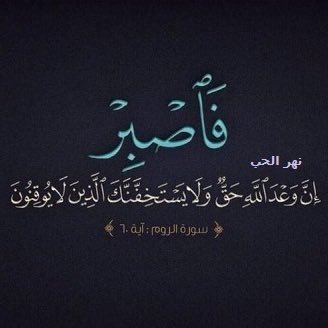 فَٱصْبِرْ
نهر الحب
إِنَّ وَعْدَ ٱللَّهِ حَقٌّ وَلَا يَسْتَخِفَّنَّكَ ٱلَّذِينَ لَا يُوقِنُونَ
﴿ سورة الروم : آية ٦٠ ﴾